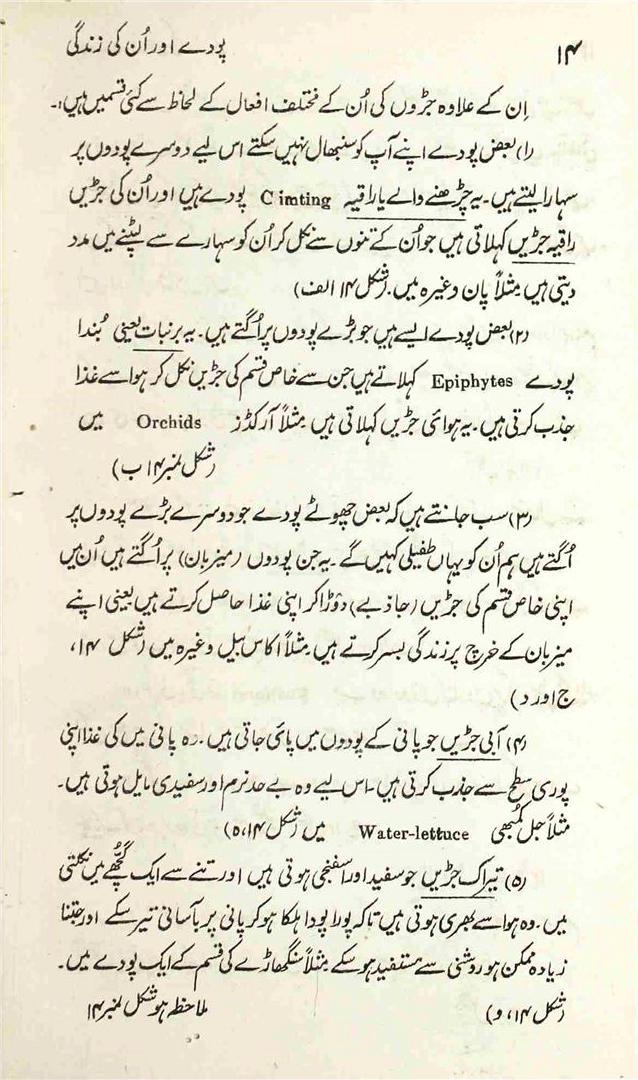 ۱۴ پودے اور اُن کی زندگی
اِن کے علاوہ جڑوں کی اُن کے مختلف افعال کے لحاظ سے کئی قسمیں ہیں:۔
(۱) بعض پودے اپنے آپ کو سنبھال نہیں سکتے اس لیے دوسرے پودوں پر
سہارا لیتے ہیں۔ یہ چڑھنے والے یا راقیہ Cimting پودے ہیں اور اُن کی جڑیں
راقیہ جڑیں کہلاتی ہیں جو اُن کے تنوں سے نکل کر اُن کو سہارے سے لپٹنے میں مدد
دیتی ہیں مثلاً پان وغیرہ میں۔ (شکل ۱۴ الف)
(۲) بعض پودے ایسے ہیں جو بڑے پودوں پر اُگتے ہیں۔ یہ بر نبات یعنی بُندا
پودے Epiphytes کہلاتے ہیں جن سے خاص قسم کی جڑیں نکل کر ہوا سے غذا
جذب کرتی ہیں۔ یہ ہوائی جڑیں کہلاتی ہیں مثلاً آرکڈز Orchids میں
(شکل نمبر ۱۴ ب)
(۳) سب جانتے ہیں کہ بعض چھوٹے پودے جو دوسرے بڑے پودوں پر
اُگتے ہیں ہم اُن کو یہاں طفیلی کہیں گے۔ یہ جن پودوں (میزبان) پر اُگتے ہیں اُن میں
اپنی خاص قسم کی جڑیں (جاذبے) دوڑا کر اپنی غذا حاصل کرتے ہیں یعنی اپنے
میزبان کے خرچ پر زندگی بسر کرتے ہیں مثلاً اکاس بیل وغیرہ میں (شکل ۱۴،
ج اور د)
(۴) آبی جڑیں جو پانی کے پودوں میں پائی جاتی ہیں۔ وہ پانی میں کی غذا اپنی
پوری سطح سے جذب کرتی ہیں۔ اس لیے وہ بے حد نرم اور سفیدی مایل ہوتی ہیں۔
مثلاً جل کمبھی Water-lettuce میں (شکل ۱۴، ہ)
(۵) تیراک جڑیں جو سفید اور اسفنجی ہوتی ہیں اور تنے سے ایک گچھے میں نکلتی
ہیں۔ وہ ہوا سے بھری ہوتی ہیں تاکہ پورا پودا ہلکا ہو کر پانی پر بآسانی تیر سکے اور جتنا
زیادہ ممکن ہو روشنی سے مستفید ہو سکے مثلاً سنگھاڑے کی قسم کے ایک پودے میں۔
(شکل ۱۴، و) ملاحظہ ہو شکل نمبر ۱۴